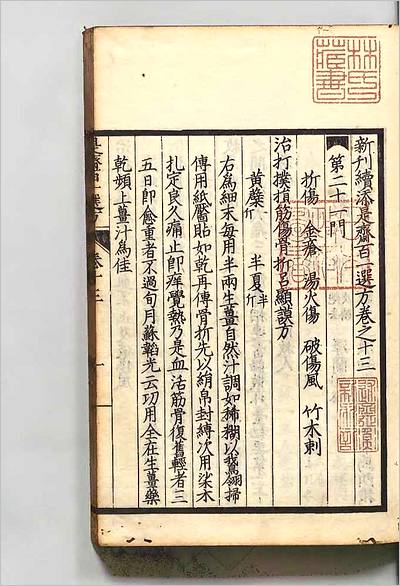 新刊續添是齋百一選方卷之十三
第二十一門
折傷 金瘡 湯火傷 破傷風 竹木刺
治打撲損筋傷骨折呂顯謨方
黄檗一斤 半夏半斤
右為細末每用半兩生薑自然汁調如稀糊以鵞翎掃
傅用紙靨貼如乾再傅骨折先以絹帛封縛次用柒木
扎定良久痛止即痒覺熱乃是血活筋骨復舊輕者三
五日即愈重者不過旬月蘇韜光云功用全在生薑藥
乾頻上薑汁為佳
林氏
藏書